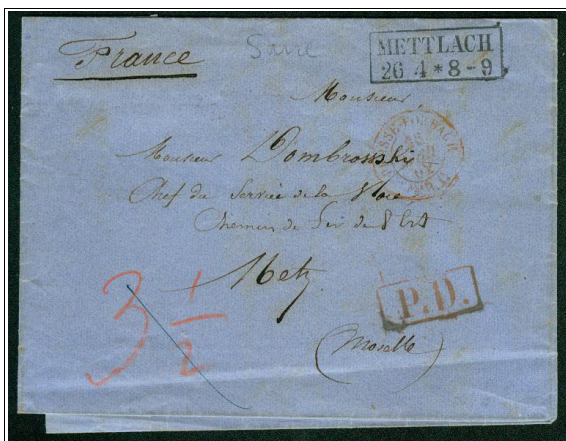 France
Saire
METTLACH
26 4 * 8-9
Monsieur
Monsieur Dombrosski
Chef du Service de la Voie
Chemin de fer de l'Est
Metz
(Moselle)
P.D.
3 1/2